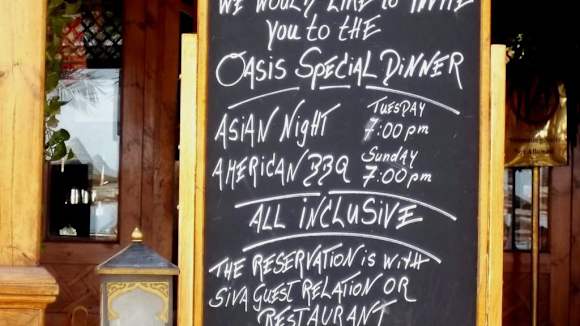 WE WOULD LIKE TO INVITE
YOU TO THE
OASIS SPECIAL DINNER
ASIAN NIGHT TUESDAY 7:00 pm
AMERICAN BBQ Sunday 7:00 pm
ALL iNCLUSiVE
THE RESERVATION iS WiTH
SIVA GUEST RELATION OR
RESTAURANT